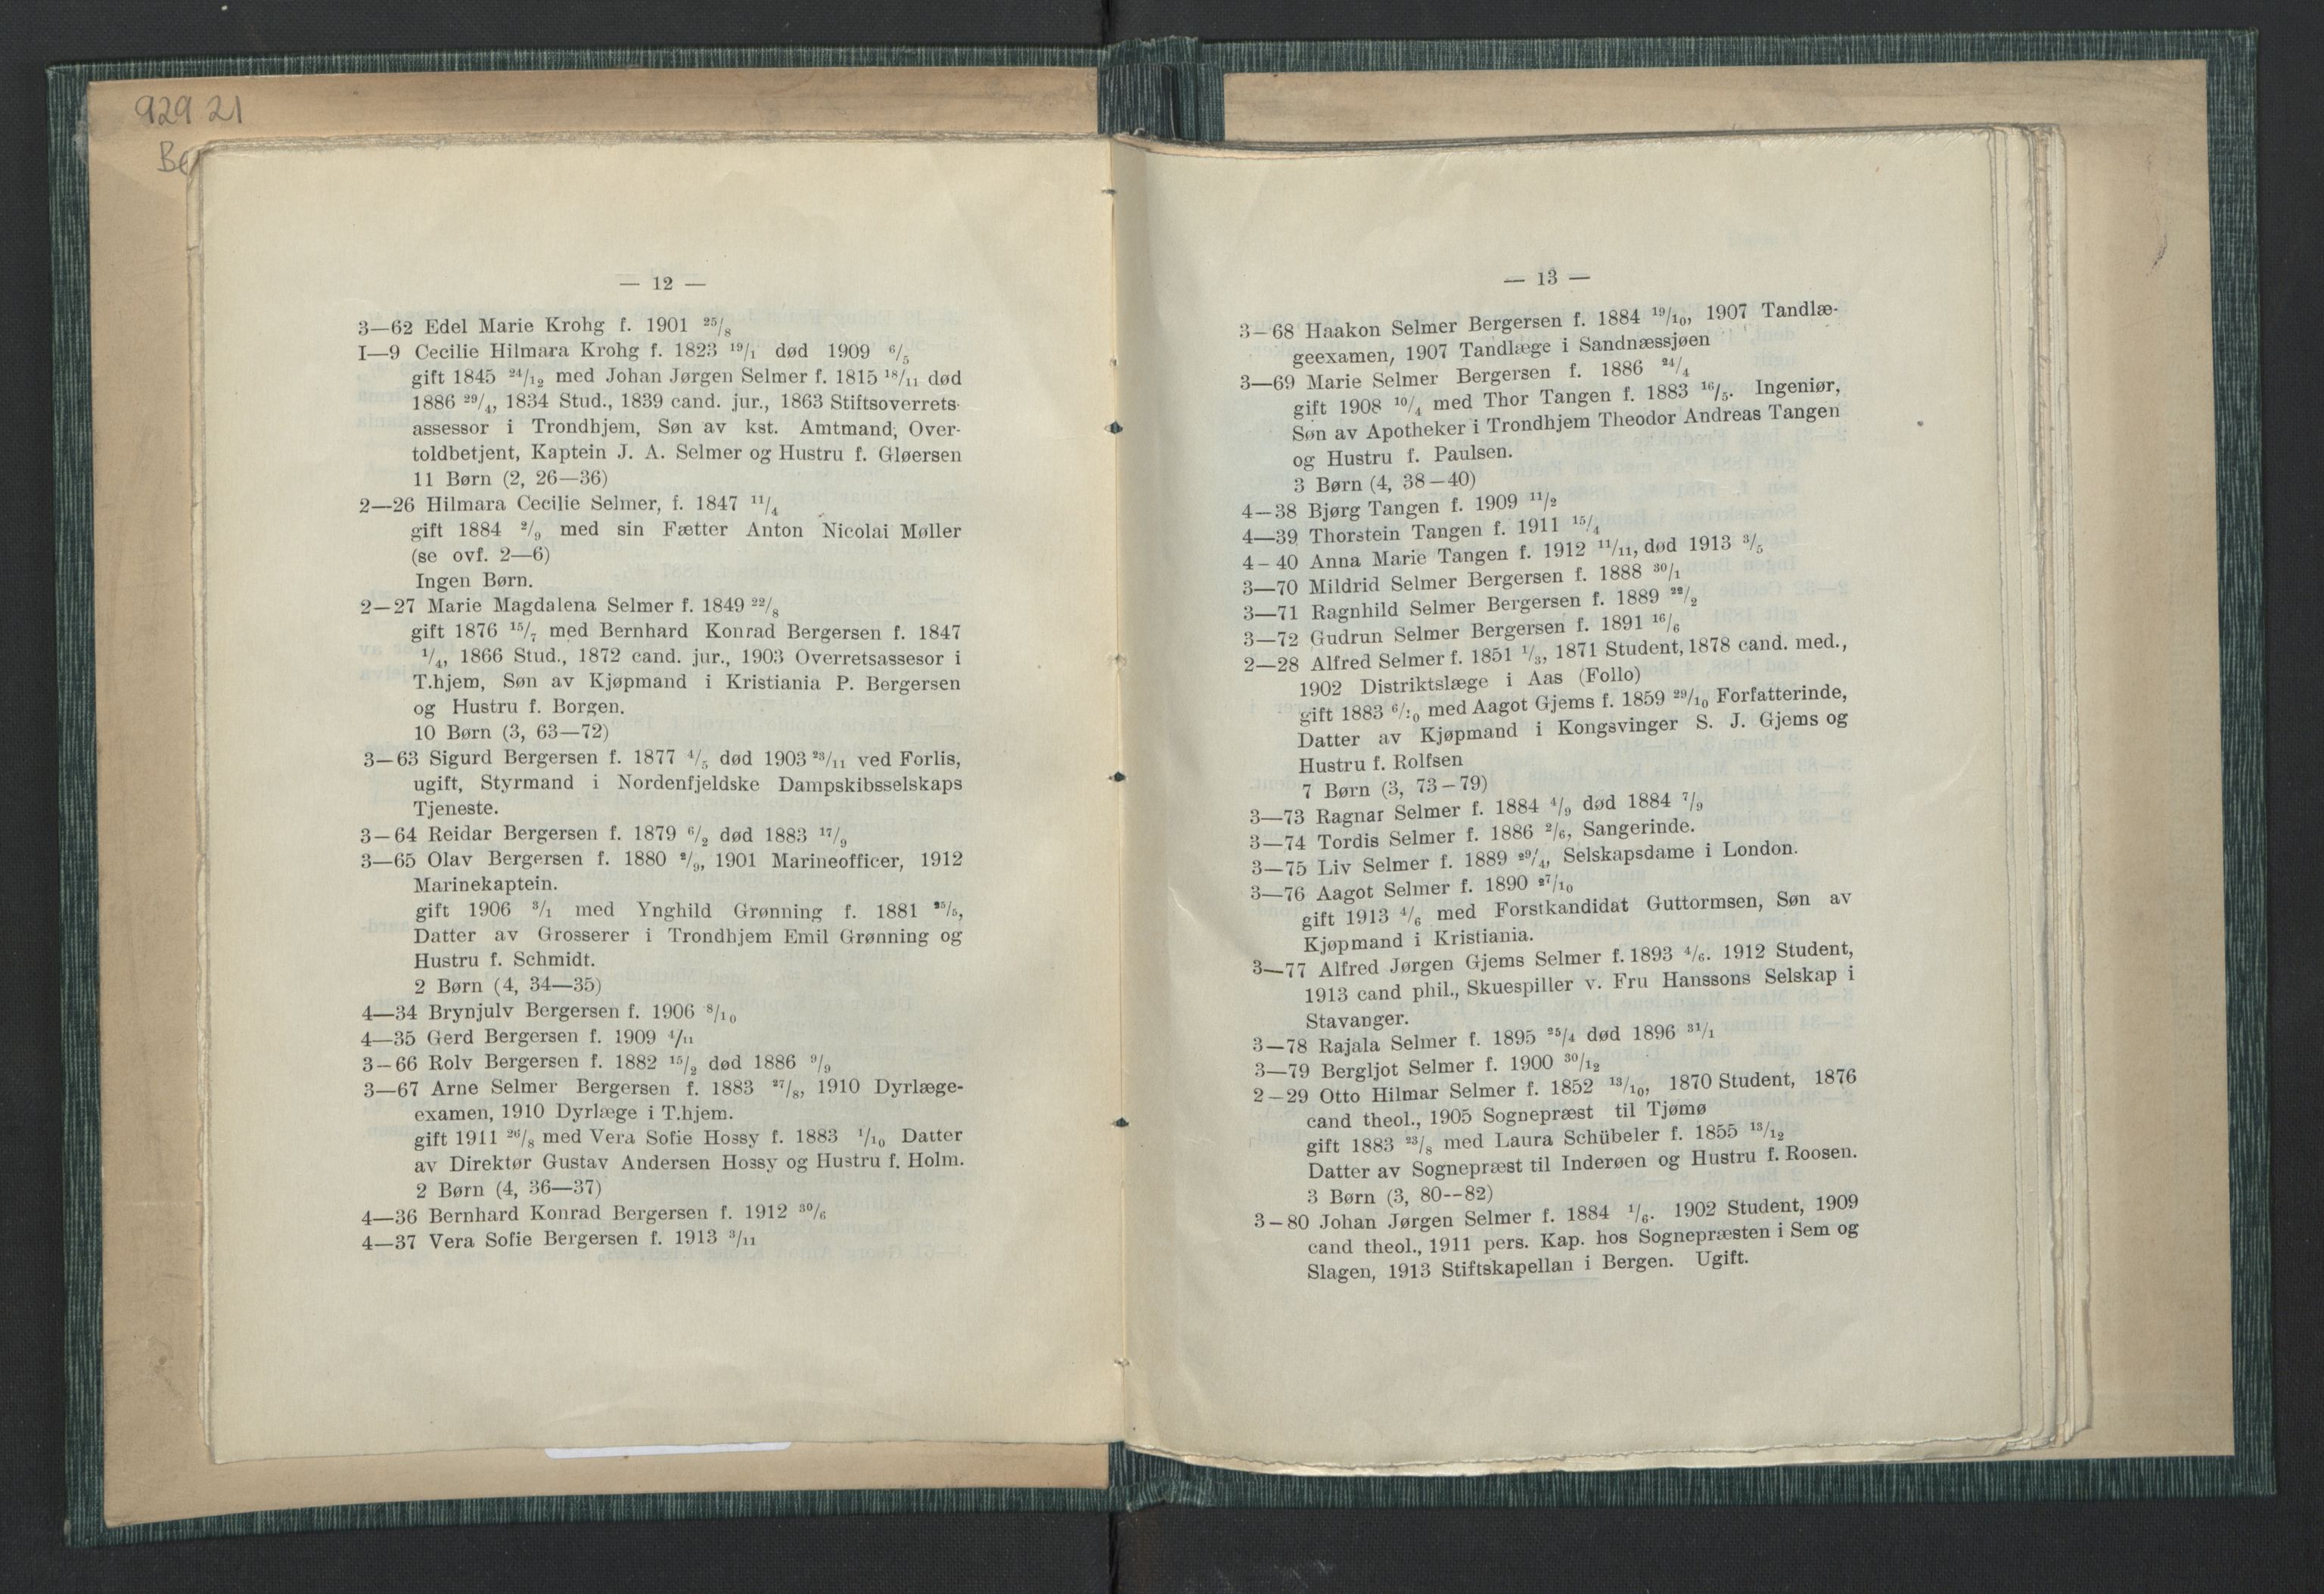 929 21
Be
— 12 —
3—62 Edel Marie Krohg f. 1901 25/8
I—9 Cecilie Hilmara Krohg f. 1823 19/1 død 1909 6/5
gift 1845 24/12 med Johan Jørgen Selmer f. 1815 18/11 død
1886 29/4, 1834 Stud., 1839 cand. jur., 1863 Stiftsoverrets-
assessor i Trondhjem, Søn av kst. Amtmand, Over-
toldbetjent, Kaptein J. A. Selmer og Hustru f. Gløersen
11 Børn (2, 26—36)
2—26 Hilmara Cecilie Selmer, f. 1847 11/4
gift 1884 2/9 med sin Fætter Anton Nicolai Møller
(se ovf. 2—6)
Ingen Børn.
2—27 Marie Magdalena Selmer f. 1849 22/8
gift 1876 15/7 med Bernhard Konrad Bergersen f. 1847
1/4, 1866 Stud., 1872 cand. jur., 1903 Overretsassesor i
T.hjem, Søn av Kjøpmand i Kristiania P. Bergersen
og Hustru f. Borgen.
10 Børn (3, 63—72)
3—63 Sigurd Bergersen f. 1877 4/5 død 1903 23/11 ved Forlis,
ugift, Styrmand i Nordenfjeldske Dampskibsselskaps
Tjeneste.
3—64 Reidar Bergersen f. 1879 6/2 død 1883 17/9
3—65 Olav Bergersen f. 1880 2/9, 1901 Marineofficer, 1912
Marinekaptein.
gift 1906 3/1 med Ynghild Grønning f. 1881 25/5,
Datter av Grosserer i Trondhjem Emil Grønning og
Hustru f. Schmidt.
2 Børn (4, 34—35)
4—34 Brynjulv Bergersen f. 1906 8/10
4—35 Gerd Bergersen f. 1909 4/11
3—66 Rolv Bergersen f. 1882 15/2 død 1886 9/9
3—67 Arne Selmer Bergersen f. 1883 27/8, 1910 Dyrlæge-
examen, 1910 Dyrlæge i T.hjem.
gift 1911 26/8 med Vera Sofie Hossy f. 1883 1/10 Datter
av Direktør Gustav Andersen Hossy og Hustru f. Holm.
2 Børn (4, 36—37)
4—36 Bernhard Konrad Bergersen f. 1912 30/6
4—37 Vera Sofie Bergersen f. 1913 3/11
— 13 —
3—68 Haakon Selmer Bergersen f. 1884 19/10, 1907 Tandlæ-
geexamen, 1907 Tandlæge i Sandnæssjøen
3—69 Marie Selmer Bergersen f. 1886 24/4
gift 1908 10/4 med Thor Tangen f. 1883 16/5. Ingeniør,
Søn av Apotheker i Trondhjem Theodor Andreas Tangen
og Hustru f. Paulsen.
3 Børn (4, 38—40)
4—38 Bjørg Tangen f. 1909 11/2
4—39 Thorstein Tangen f. 1911 15/4
4—40 Anna Marie Tangen f. 1912 11/11, død 1913 3/5
3—70 Mildrid Selmer Bergersen f. 1888 30/1
3—71 Ragnhild Selmer Bergersen f. 1889 22/2
3—72 Gudrun Selmer Bergersen f. 1891 16/6
2—28 Alfred Selmer f. 1851 1/3, 1871 Student, 1878 cand. med.,
1902 Distriktslæge i Aas (Follo)
gift 1883 6/10 med Aagot Gjems f. 1859 29/10 Forfatterinde,
Datter av Kjøpmand i Kongsvinger S. J. Gjems og
Hustru f. Rolfsen
7 Børn (3, 73—79)
3—73 Ragnar Selmer f. 1884 4/9 død 1884 7/9
3—74 Tordis Selmer f. 1886 2/6, Sangerinde.
3—75 Liv Selmer f. 1889 29/4, Selskapsdame i London.
3—76 Aagot Selmer f. 1890 27/10
gift 1913 4/6 med Forstkandidat Guttormsen, Søn av
Kjøpmand i Kristiania.
3—77 Alfred Jørgen Gjems Selmer f. 1893 4/6. 1912 Student,
1913 cand phil., Skuespiller v. Fru Hanssons Selskap i
Stavanger.
3—78 Rajala Selmer f. 1895 25/4 død 1896 31/1
3—79 Bergljot Selmer f. 1900 30/12
2—29 Otto Hilmar Selmer f. 1852 13/10, 1870 Student, 1876
cand theol., 1905 Sognepræst til Tjømø
gift 1883 23/8 med Laura Schübeler f. 1855 13/12
Datter av Sognepræst til Inderøen og Hustru f. Roosen.
3 Børn (3, 80--82)
3—80 Johan Jørgen Selmer f. 1884 1/6. 1902 Student, 1909
cand theol., 1911 pers. Kap. hos Sognepræsten i Sem og
Slagen, 1913 Stiftskapellan i Bergen. Ugift.